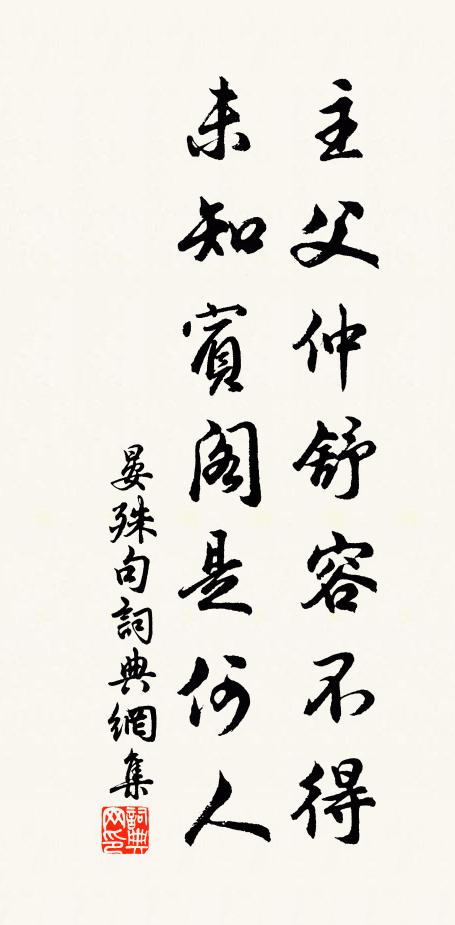 主父仲舒容不得
未知賓閣是何人
晏殊句詞典網集
詞典
网印